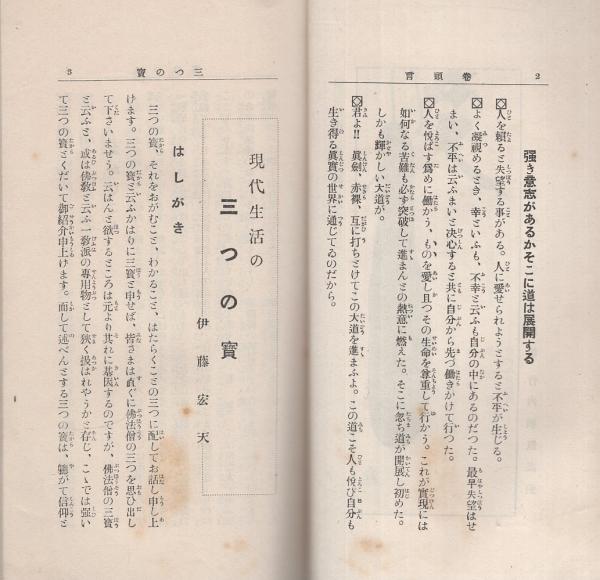 2
巻頭言
強き意志があるかそこに道は展開する
◇人を頼ると失望する事がある。人に愛せられようとすると不平が生じる。
◇よく凝視めるとき、幸といふも、不幸と云ふも自分の中にあるのだつた。最早失望はせ
まい、不平は云ふまいと决心すると共に自分から先づ働きかけて行つた。
◇人を悦ばす爲めに働かう、ものを愛し且つその生命を尊重して行かう。これが實現には
如何なる苦難も必ず突破して進まんとの熱意に燃えた。そこに忽ち道が開展し初めた。
しかも輝かしい大道が。
◇君よ!! 眞劍、赤裸、互に打ちとけてこの大道を進まふよ。この道こそ人も悅び自分も
生き得る眞實の世界に通じてるのだから。
三つの寶
3
現代生活の
三つの寶
伊藤宏天
はしがき
三つの寶、それをおがむこと、わかること、はたらくことの三つに配してお話し申し上
けます。三つの寶と云ふかはりに三寶と申せば、皆さまは直ぐに佛法僧の三つを思ひ出し
て下さいませう。云はんと欲するところは元より其れに基因するのですが、佛法僧の三寶
と云ふと、或は佛敎と云ふ一敎派の專用物として狹く扱はれやうかと存じ、こゝでは强い
て三つの寶とくだいて御紹介申上けます。而して述べんとする三つの寶は、軈がて信仰と